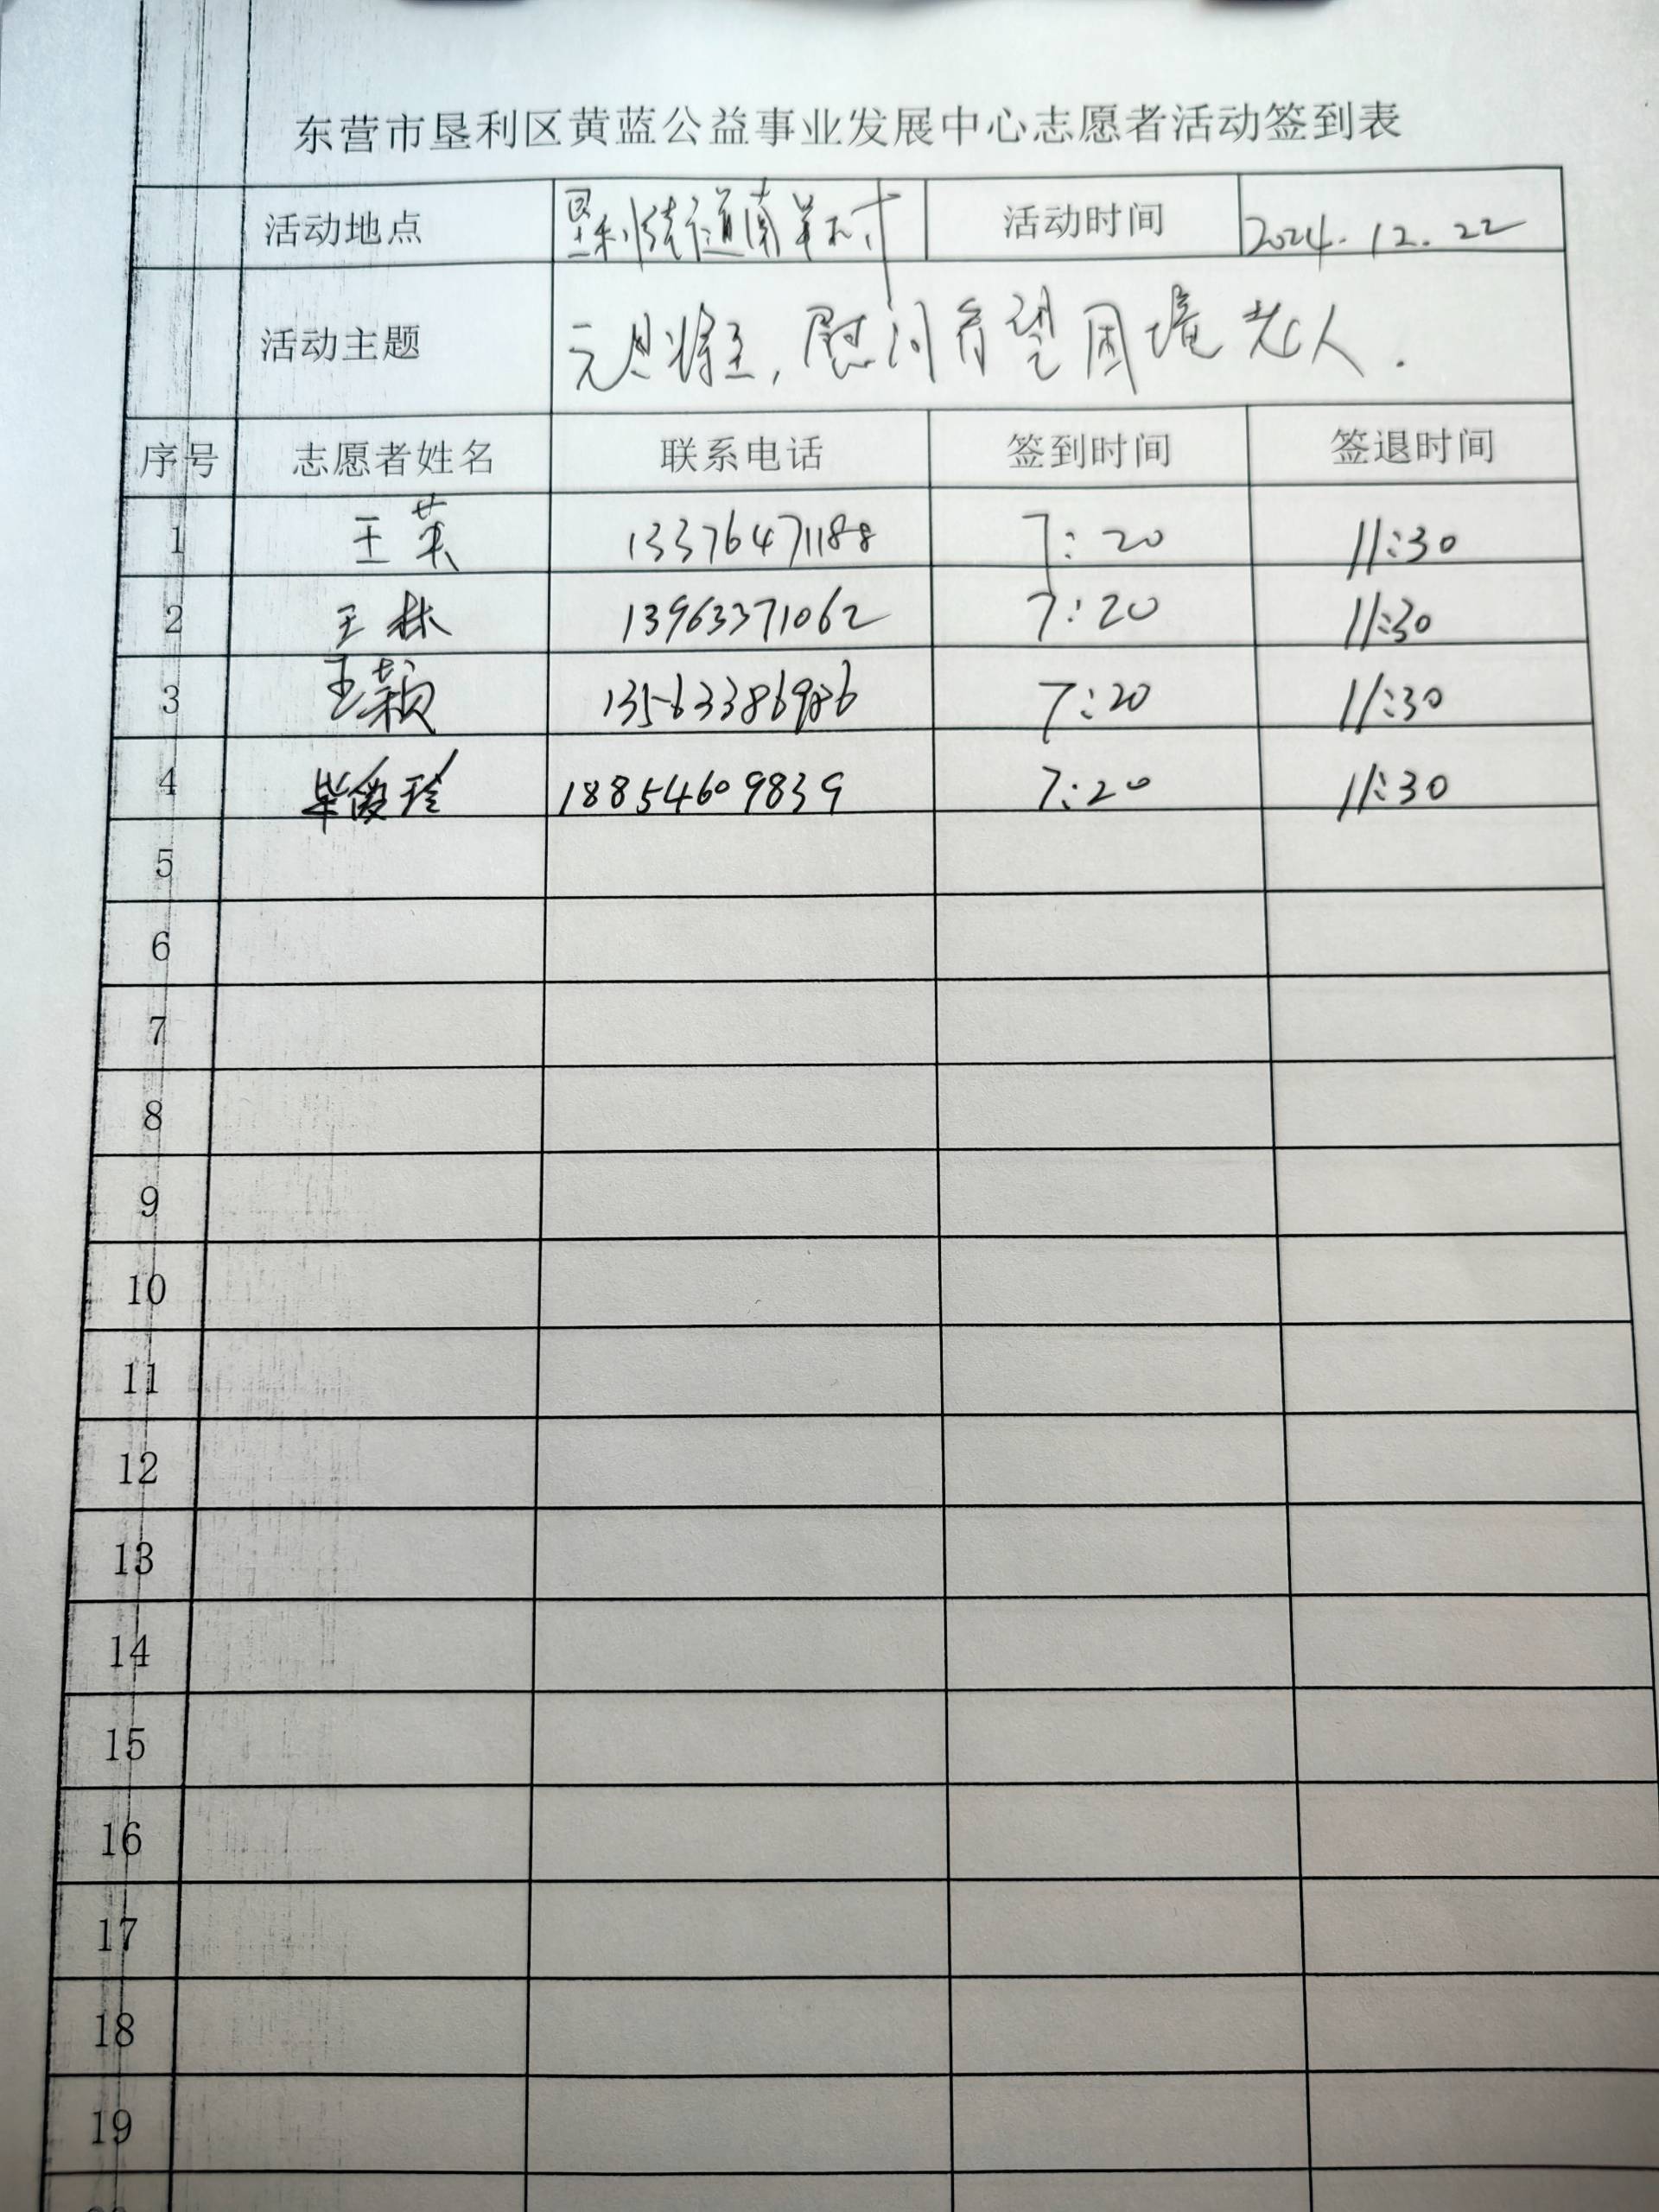 东营市垦利区黄蓝公益事业发展中心志愿者活动签到表
活动地点 垦利街道南羊村 活动时间 2024.12.22
活动主题 元旦将至,慰问看望困境老人.
序号 志愿者姓名 联系电话 签到时间 签退时间
1 王英 13376471188 7:20 11:30
2 王林 13963371062 7:20 11:30
3 王颖 13563386986 7:20 11:30
4 毕俊玲 18854609839 7:20 11:30
5
6
7
8
9
10
11
12
13
14
15
16
17
18
19